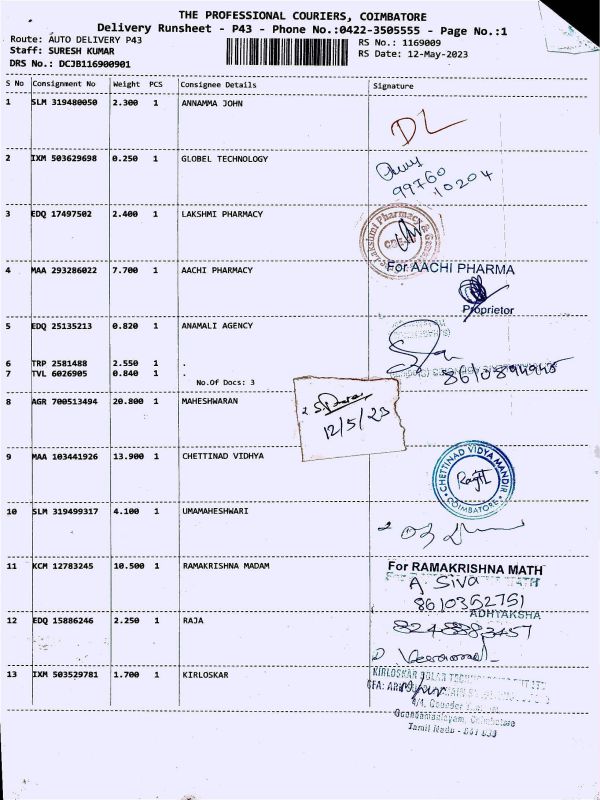 THE PROFESSIONAL COURIERS, COIMBATORE
Delivery Runsheet - P43 - Phone No.:0422-3505555 - Page No.:1
Route: AUTO DELIVERY P43
RS No.: 1169009
Staff: SURESH KUMAR
RS Date: 12-May-2023
DRS No.: DCJB116900901
S No Consignment No Weight PCS Consignee Details Signature
1 SLM 319480050 2.300 1 ANNAMMA JOHN
DL
2 IXM 503629698 0.250 1 GLOBEL TECHNOLOGY
99760
10204
3 EDQ 17497502 2.400 1 LAKSHMI PHARMACY
Lakshmi Pharmacy &
4 MAA 293286022 7.700 1 AACHI PHARMACY
For AACHI PHARMA
Proprietor
5 EDQ 25135213 0.820 1 ANAMALI AGENCY
6 TRP 2581488 2.550 1 .
7 TVL 6026905 0.840 1 .
No.Of Docs: 3
8 AGR 700513494 20.800 1 MAHESHWARAN
12/5/23
9 MAA 103441926 13.900 1 CHETTINAD VIDHYA
CHETTINAD VIDYA MANDIR
COIMBATORE
10 SLM 319499317 4.100 1 UMAMAHESHWARI
11 KCM 12783245 10.500 1 RAMAKRISHNA MADAM
For RAMAKRISHNA MATH
A. Siva
8610352751
ADHYAKSHA
12 EDQ 15886246 2.250 1 RAJA
13 IXM 503529781 1.700 1 KIRLOSKAR
KIRLOSKAR SOLAR
Coimbatore
Tamil Nadu